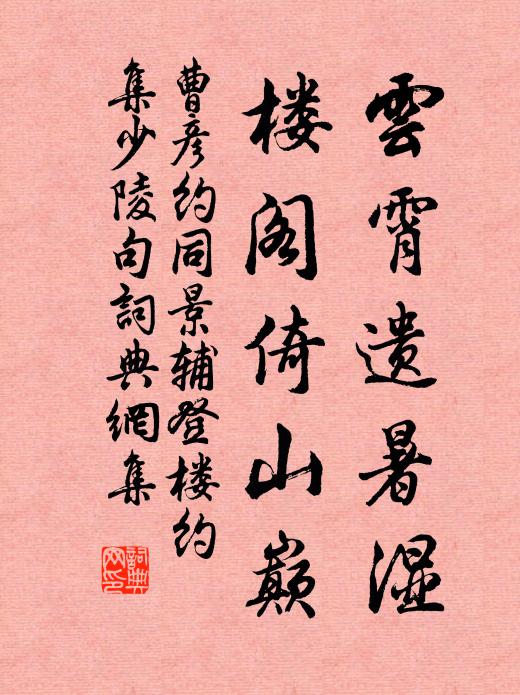 雲霄遗暑湿
楼阁倚山巅
曹彦约同景辅登楼约
集少陵句詞典網集
詞典网印